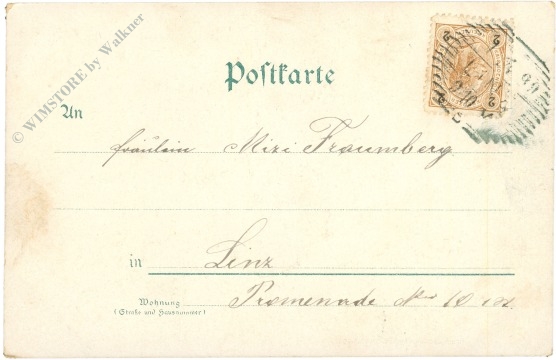 © WIMSTORE by Walkner
Postkarte
2 2
2 2
An
Fräulein Mizi Traumberg
in Linz
Wohnung
(Straße und Hausnummer)
Promenade No 10